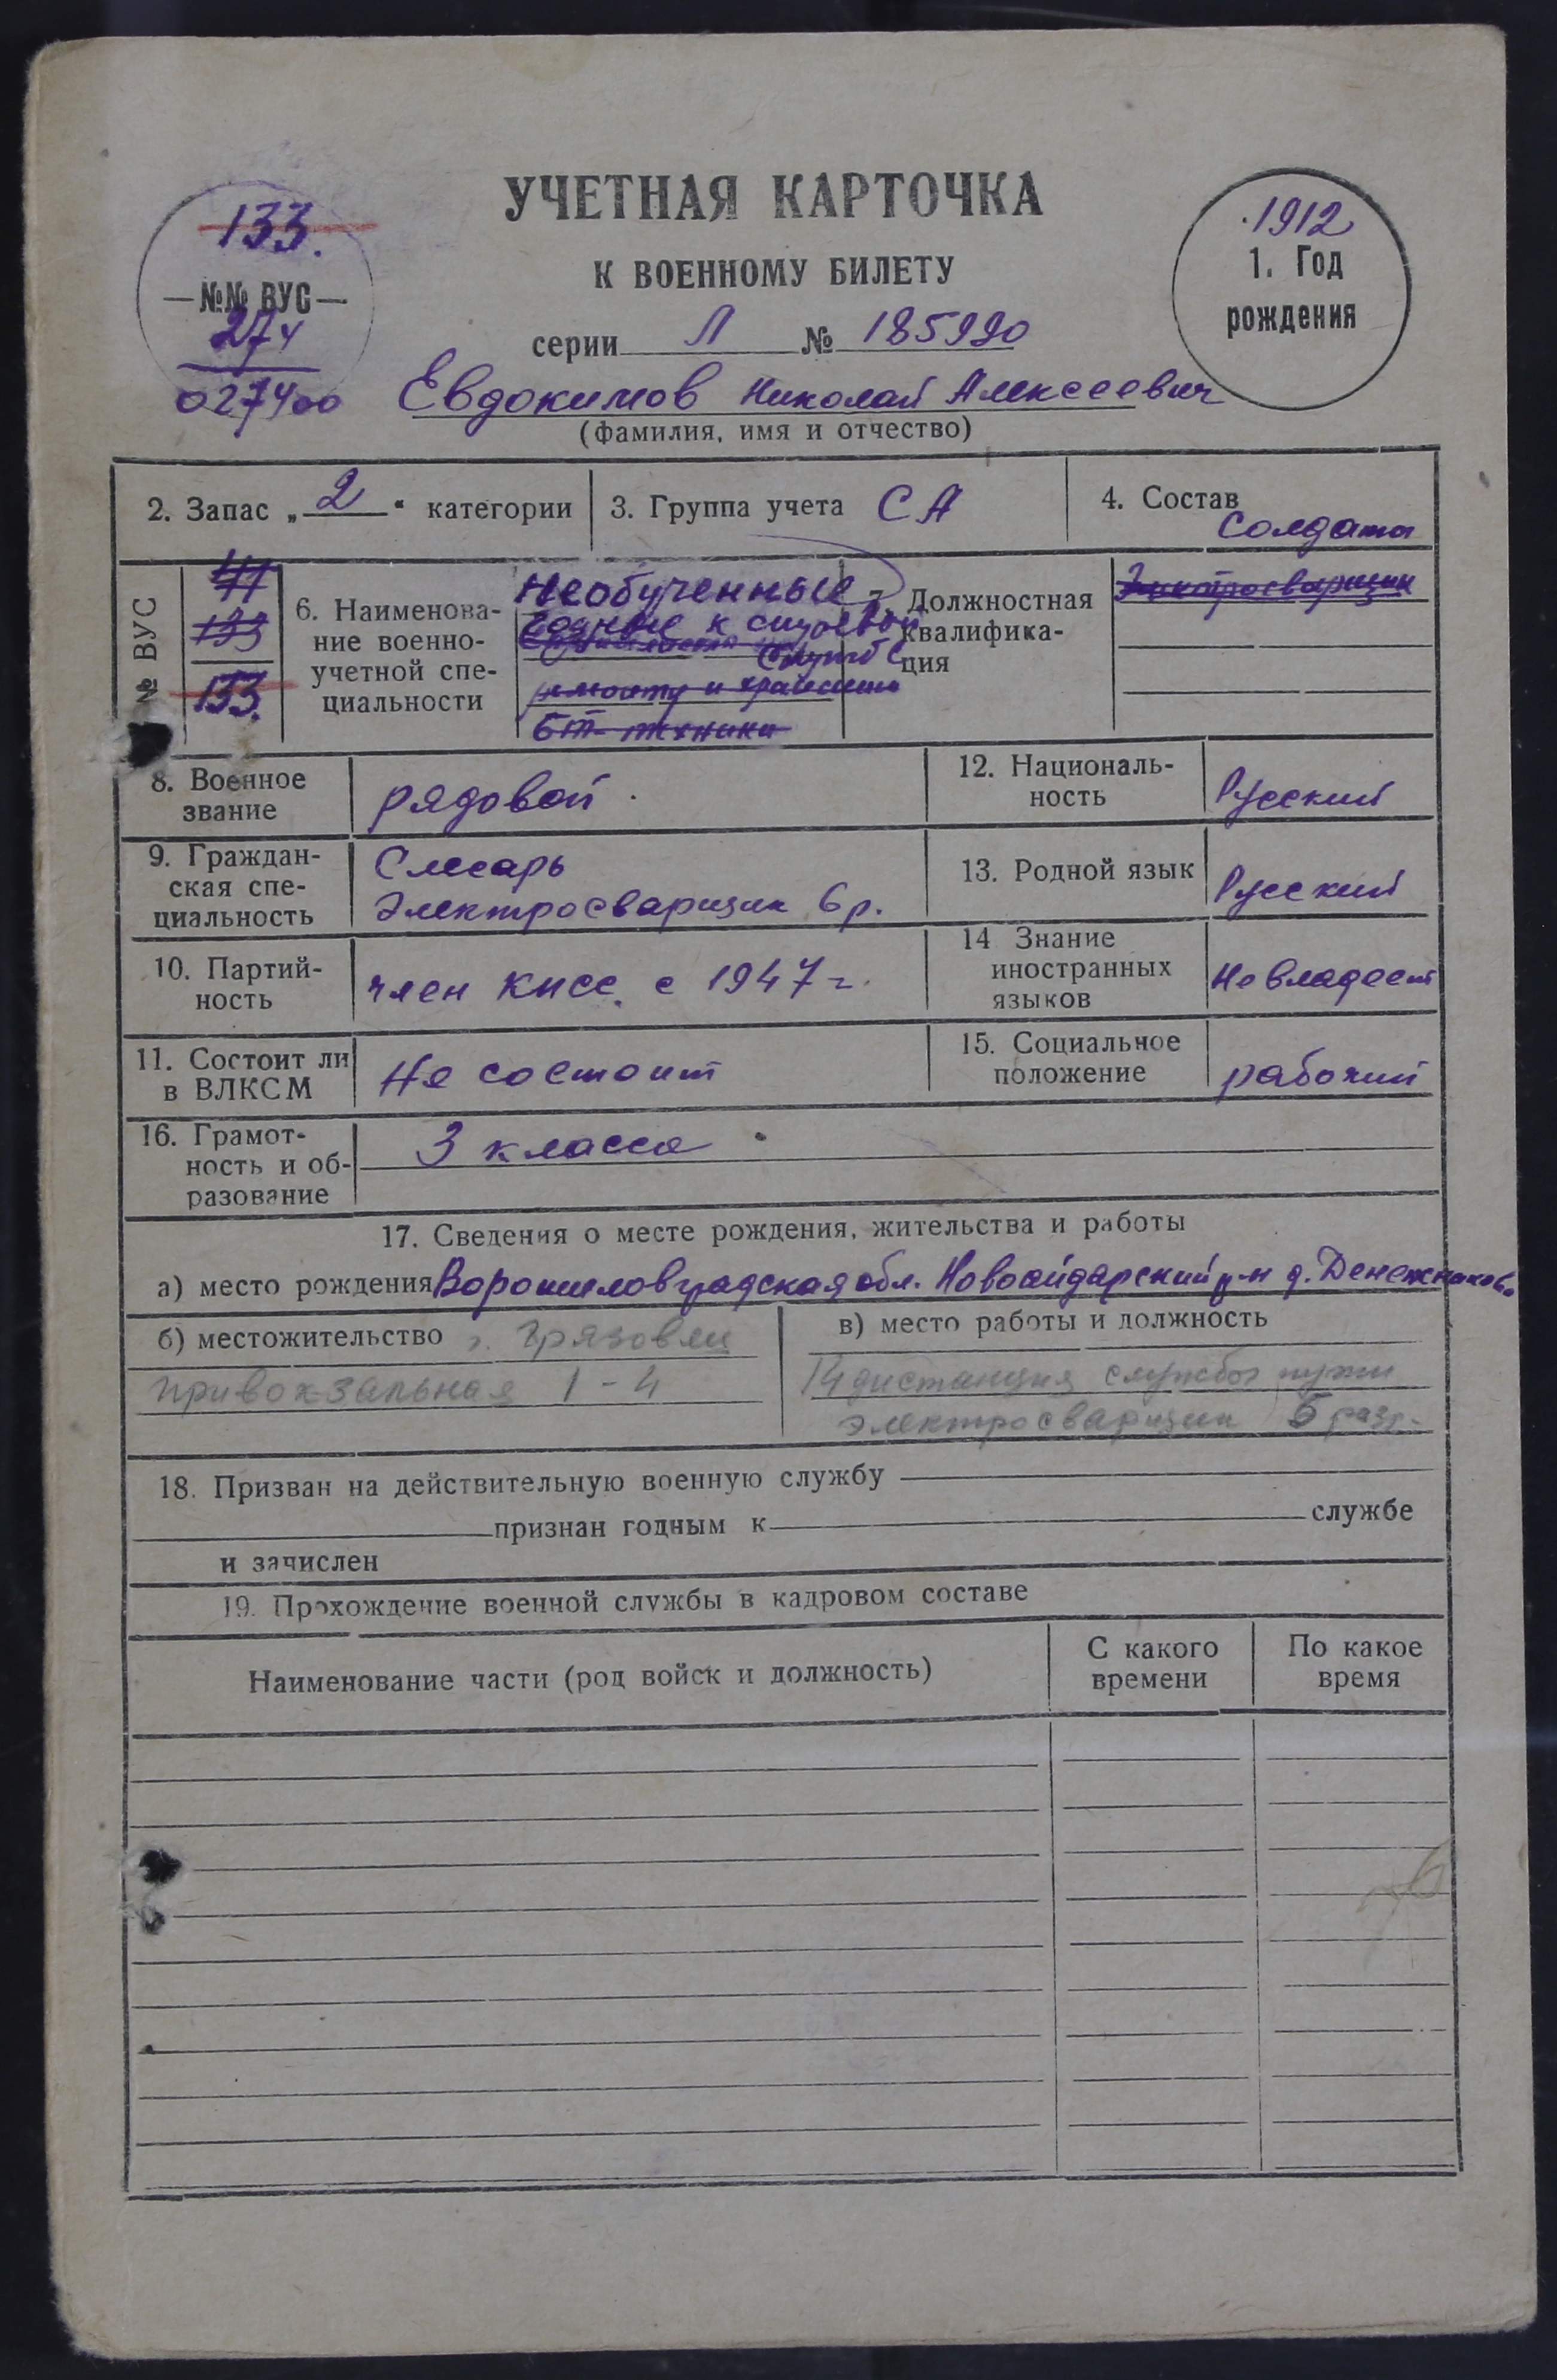 УЧЕТНАЯ КАРТОЧКА
К ВОЕННОМУ БИЛЕТУ
серии Л № 185990
133.
№№ ВУС
274
0274оо
1912
1. Год
рождения
Евдокимов Николай Алексеевич
(фамилия, имя и отчество)
2. Запас „2“ категории
3. Группа учета СА
4. Состав
солдаты
№ ВУС
133
133.
6. Наименова-
ние военно-
учетной спе-
циальности
Необученные
годные к строевой
службе
ремонту и хранению
БТ техники
7. Должностная
квалифика-
ция
Электросварщик
8. Военное
звание
рядовой
12. Националь-
ность
Русский
9. Граждан-
ская спе-
циальность
Слесарь
Электросварщик 6 р.
13. Родной язык
Русский
10. Партий-
ность
член КПСС с 1947 г.
14 Знание
иностранных
языков
Не владеет
11. Состоит ли
в ВЛКСМ
Не состоит
15. Социальное
положение
рабочий
16. Грамот-
ность и об-
разование
3 класса
17. Сведения о месте рождения, жительства и работы
а) место рождения Ворошиловградская обл. Новоайдарский р-н д. Денежниково
б) местожительство г. Грязовец
Привокзальная 1-4
в) место работы и должность
14 дистанция службы пути
электросварщик 5 разр.
18. Призван на действительную военную службу
признан годным к службе
и зачислен
19. Прохождение военной службы в кадровом составе
Наименование части (род войск и должность)
С какого
времени
По какое
время